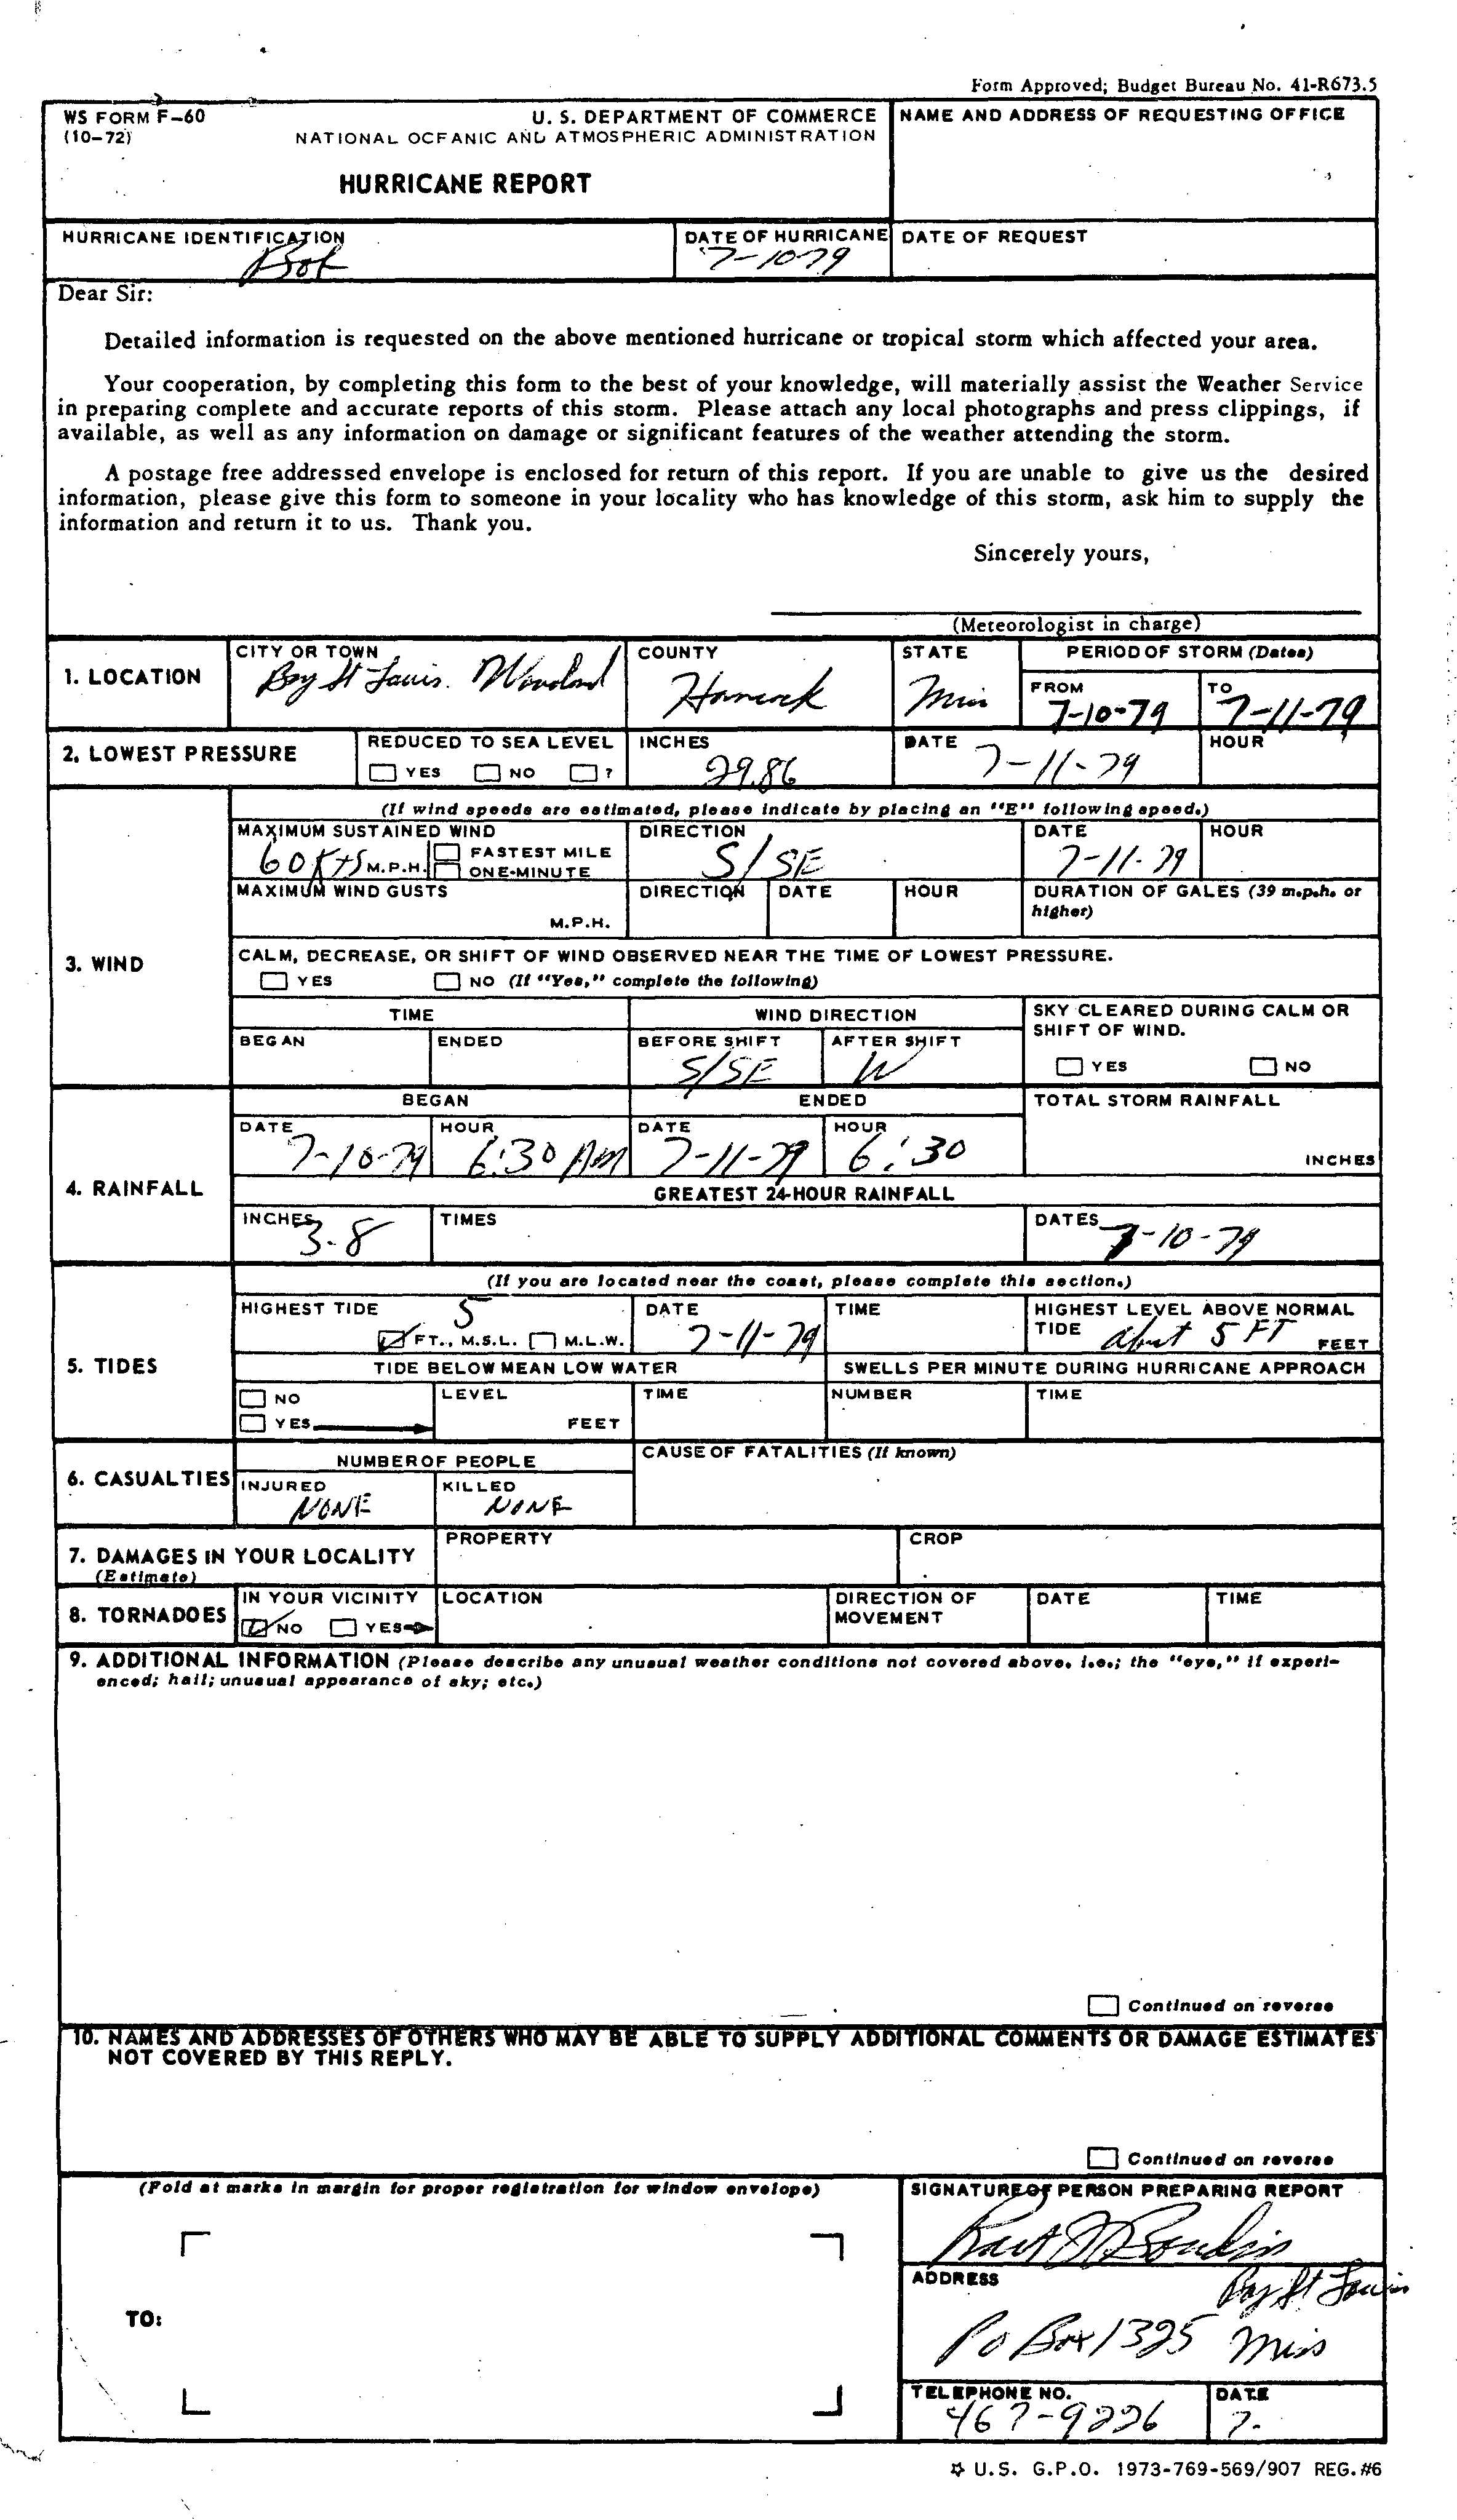 Form Approved; Budget Bureau No. 41-R673.5
WS FORM F-60
(10-72)
U. S. DEPARTMENT OF COMMERCE
NATIONAL OCEANIC AND ATMOSPHERIC ADMINISTRATION
HURRICANE REPORT
NAME AND ADDRESS OF REQUESTING OFFICE
HURRICANE IDENTIFICATION
Bob
DATE OF HURRICANE
7-10-79
DATE OF REQUEST
Dear Sir:
Detailed information is requested on the above mentioned hurricane or tropical storm which affected your area.
Your cooperation, by completing this form to the best of your knowledge, will materially assist the Weather Service
in preparing complete and accurate reports of this storm. Please attach any local photographs and press clippings, if
available, as well as any information on damage or significant features of the weather attending the storm.
A postage free addressed envelope is enclosed for return of this report. If you are unable to give us the desired
information, please give this form to someone in your locality who has knowledge of this storm, ask him to supply the
information and return it to us. Thank you.
Sincerely yours,
(Meteorologist in charge)
1. LOCATION
CITY OR TOWN
Bay St Louis.
COUNTY
Hancock
STATE
Miss
PERIOD OF STORM (Dates)
FROM
7-10-79
TO
7-11-79
2. LOWEST PRESSURE
REDUCED TO SEA LEVEL
YES NO ?
INCHES
29.86
DATE
7-11-79
HOUR
3. WIND
(If wind speeds are estimated, please indicate by placing an "E" following speed.)
MAXIMUM SUSTAINED WIND
60 KTS M.P.H.
FASTEST MILE
ONE-MINUTE
DIRECTION
S/SE
DATE
7-11-79
HOUR
MAXIMUM WIND GUSTS
M.P.H.
DIRECTION
DATE
HOUR
DURATION OF GALES (39 m.p.h. or
higher)
CALM, DECREASE, OR SHIFT OF WIND OBSERVED NEAR THE TIME OF LOWEST PRESSURE.
YES NO (If "Yes," complete the following)
TIME
BEGAN
ENDED
WIND DIRECTION
BEFORE SHIFT
S/SE
AFTER SHIFT
W
SKY CLEARED DURING CALM OR
SHIFT OF WIND.
YES NO
4. RAINFALL
BEGAN
DATE
7-10-79
HOUR
6:30 AM
ENDED
DATE
7-11-79
HOUR
6:30
TOTAL STORM RAINFALL
INCHES
GREATEST 24-HOUR RAINFALL
INCHES
3-8
TIMES
DATES
7-10-79
5. TIDES
(If you are located near the coast, please complete this section.)
HIGHEST TIDE
5
FT., M.S.L. M.L.W.
DATE
7-11-79
TIME
HIGHEST LEVEL ABOVE NORMAL
TIDE
about 5 FT
FEET
TIDE BELOW MEAN LOW WATER
NO
YES
LEVEL
FEET
TIME
SWELLS PER MINUTE DURING HURRICANE APPROACH
NUMBER
TIME
6. CASUALTIES
NUMBER OF PEOPLE
INJURED
NONE
KILLED
NONE
CAUSE OF FATALITIES (If known)
7. DAMAGES IN YOUR LOCALITY
(Estimate)
PROPERTY
CROP
8. TORNADOES
IN YOUR VICINITY
NO YES
LOCATION
DIRECTION OF
MOVEMENT
DATE
TIME
9. ADDITIONAL INFORMATION (Please describe any unusual weather conditions not covered above, i.e.; the "eye," if experi-
enced; hail; unusual appearance of sky; etc.)
Continued on reverse
10. NAMES AND ADDRESSES OF OTHERS WHO MAY BE ABLE TO SUPPLY ADDITIONAL COMMENTS OR DAMAGE ESTIMATES
NOT COVERED BY THIS REPLY.
Continued on reverse
(Fold at marks in margin for proper registration for window envelope)
TO:
SIGNATURE OF PERSON PREPARING REPORT
ADDRESS
Bay St Louis
PO Box 1325 Miss
TELEPHONE NO.
467-9226
DATE
7-
☆ U.S. G.P.O. 1973-769-569/907 REG.#6